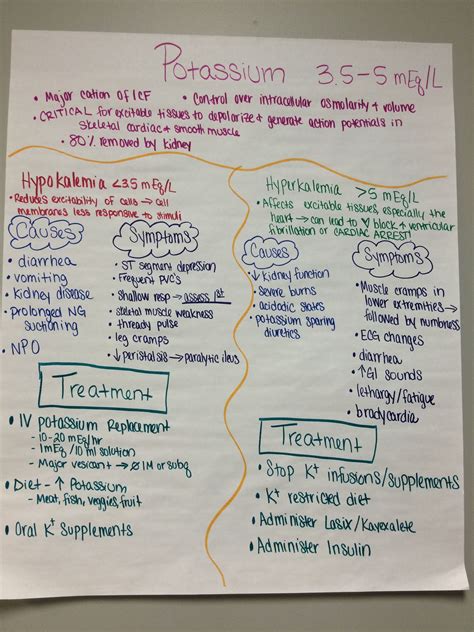 Potassium 3.5-5 mEq/L
• Major cation of ICF • Control over intracellular osmolarity & volume
• CRITICAL for excitable tissues to depolarize & generate action potentials in
skeletal cardiac & smooth muscle
• 80% removed by kidney
Hypokalemia <3.5 mEq/L
• Reduces excitability of cells → cell
membranes less responsive to stimuli
Causes
• diarrhea
• vomiting
• kidney disease
• prolonged NG
suctioning
• NPO
Symptoms
• ST segment depression
• Frequent PVC's
• Shallow resp → assess 1st
• skeletal muscle weakness
• thready pulse
• leg cramps
• ↓ peristalsis → paralytic ileus
Treatment
• IV potassium Replacement
- 10-20 mEq/hr
- 1mEq/10 ml solution
- Major vesicant → Ø IM or subq
• Diet - ↑ Potassium
- Meat, fish, veggies, fruit
• Oral K+ Supplements
Hyperkalemia >5 mEq/L
• Affects excitable tissues, especially the
heart → can lead to block & ventricular
fibrillation or CARDIAC ARREST!
Causes
• ↓ kidney function
• severe burns
• acidodic states
• potassium sparing
diuretics
Symptoms
• Muscle cramps in
lower extremities →
followed by numbness
• ECG changes
• diarrhea
• ↑ GI sounds
• lethargy/fatigue
• bradycardia
Treatment
• Stop K+ infusions/supplements
• K+ restricted diet
• Administer Lasix/Kayexalete
• Administer Insulin